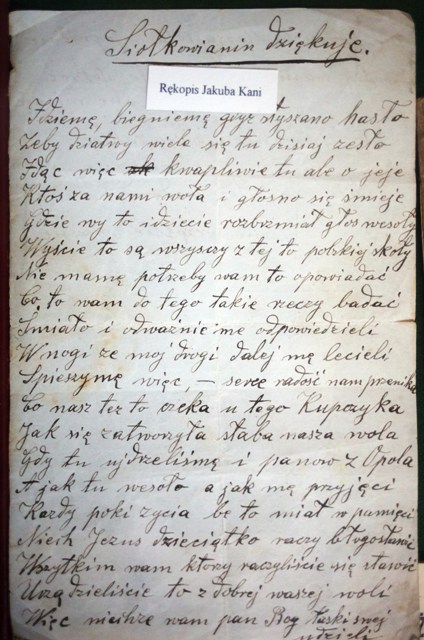 Siołkowianin dziękuje.
Rękopis Jakuba Kani
Idziemę, biegniemę gdyż słyszano hasło
Żeby dziatwy wiele się tu dzisiaj zesło
Idąc więc kwapliwie tu ale o jeje
Ktoś za nami woła i głosno się śmieje
Gdzie wy to idziecie rozbrzmiał głos wesoły
Wyście to są wszyscy z tej to polskiej skoły
Nie mamę potrzeby wam to opowiadać
Co to wam do tego takie rzeczy badać
Śmiało i odwaznie me odpowiedzieli
W nogi ze moj drogi dalej mę lecieli
Spieszymę więc, – serce radość nam przenika
Co nasz tez to czeka u tego Kupczyka
Jak się zatworzyła słaba nasza wola
Gdy tu ujdrzeliśmę i panow z Opola
A jak tu wesoło a jak mę przyjęci
Kazdy poki zycia bę to miał w pamięci
Niech Jezus dzieciątko raczy błogosławić
Wszytkim wam ktorzy raczyliście się stawić
Urządzieliście to z dobrej waszej woli
Więc niechze wam pan Bog łaski swej
udzieli